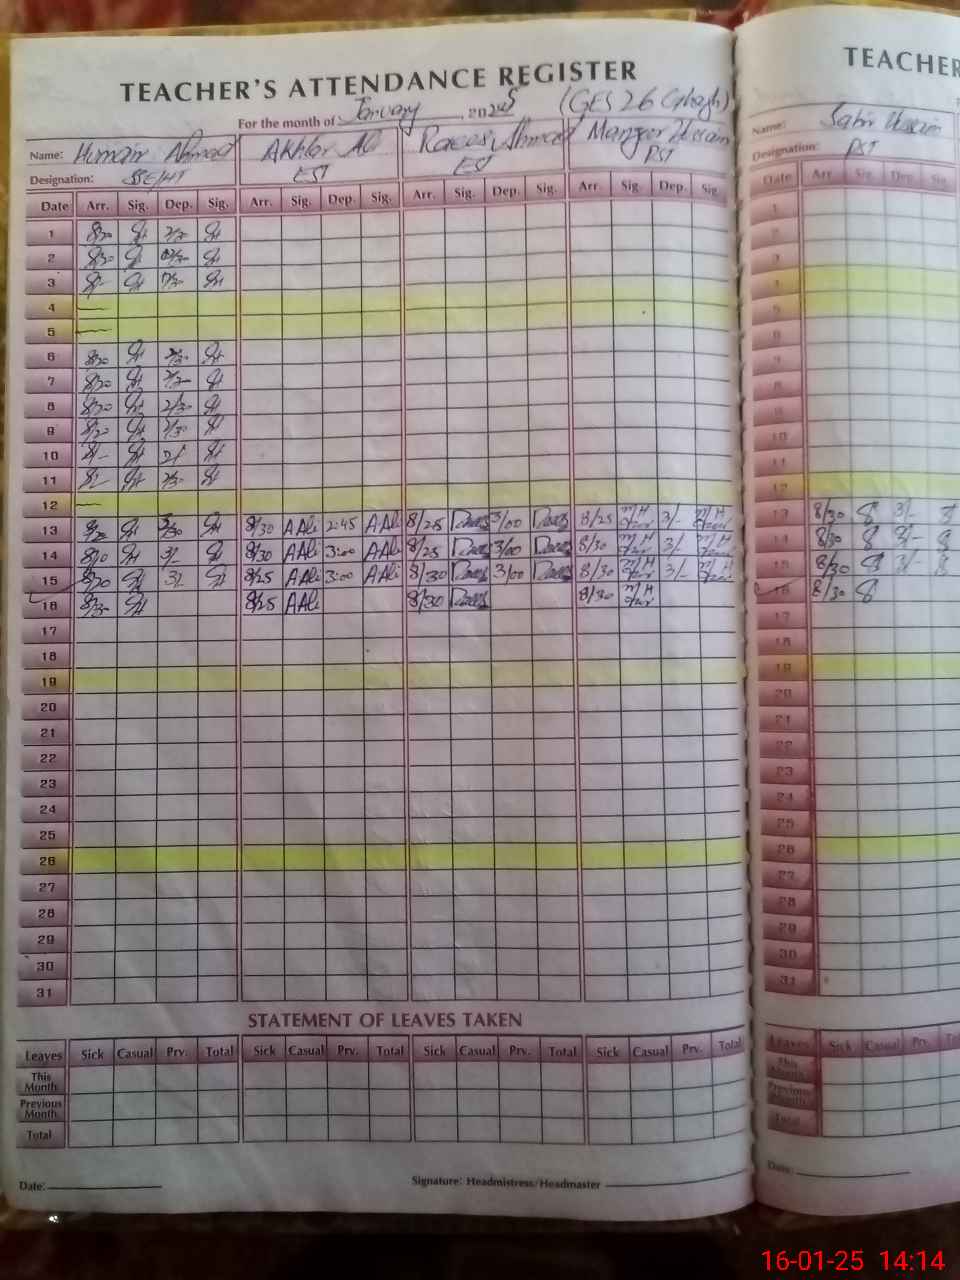 TEACHER'S ATTENDANCE REGISTER
For the month of January, 2025 (GES 26 Ghagh)
Name: Humair Ahmad Akhtar Ali Raees Ahmad Manzoor Hussain
Designation: SSE/HT EST EST PST
Date Arr. Sig. Dep. Sig. Arr. Sig. Dep. Sig. Arr. Sig. Dep. Sig. Arr. Sig. Dep. Sig.
1 8/30
2 8/30
3
4
5
6 8/30
7 8/30
8 8/30 2/30
9 8/30 2/30
10 8/-
11 8/-
12
13 8/30 3/30 8/30 AAli 2:45 AAli 8/25 3/00 8/25 MH 3/- MH
14 8/30 3/- 8/30 AAli 3:00 AAli 8/25 3/00 8/30 MH 3/- MH
15 8/30 3/- 8/25 AAli 3:00 AAli 8/30 3/00 8/30 MH 3/- MH
16 8/30 8/25 AAli 8/30 8/30 MH
17
18
19
20
21
22
23
24
25
26
27
28
29
30
31
STATEMENT OF LEAVES TAKEN
Leaves Sick Casual Prv. Total Sick Casual Prv. Total Sick Casual Prv. Total Sick Casual Prv. Total
This Month
Previous Month
Total
Date:
Signature: Headmistress/Headmaster
TEACHER
Name: Sabir Hussain
Designation: PST
Date Arr. Sig. Dep. Sig.
1
2
3
4
5
6
7
8
9
10
11
12
13 8/30 3/-
14 8/30 3/-
15 8/30 3/-
16 8/30
17
18
19
20
21
22
23
24
25
26
27
28
29
30
31
Leaves Sick Casual Prv.
This Month
Previous Month
Total
Date:
16-01-25 14:14